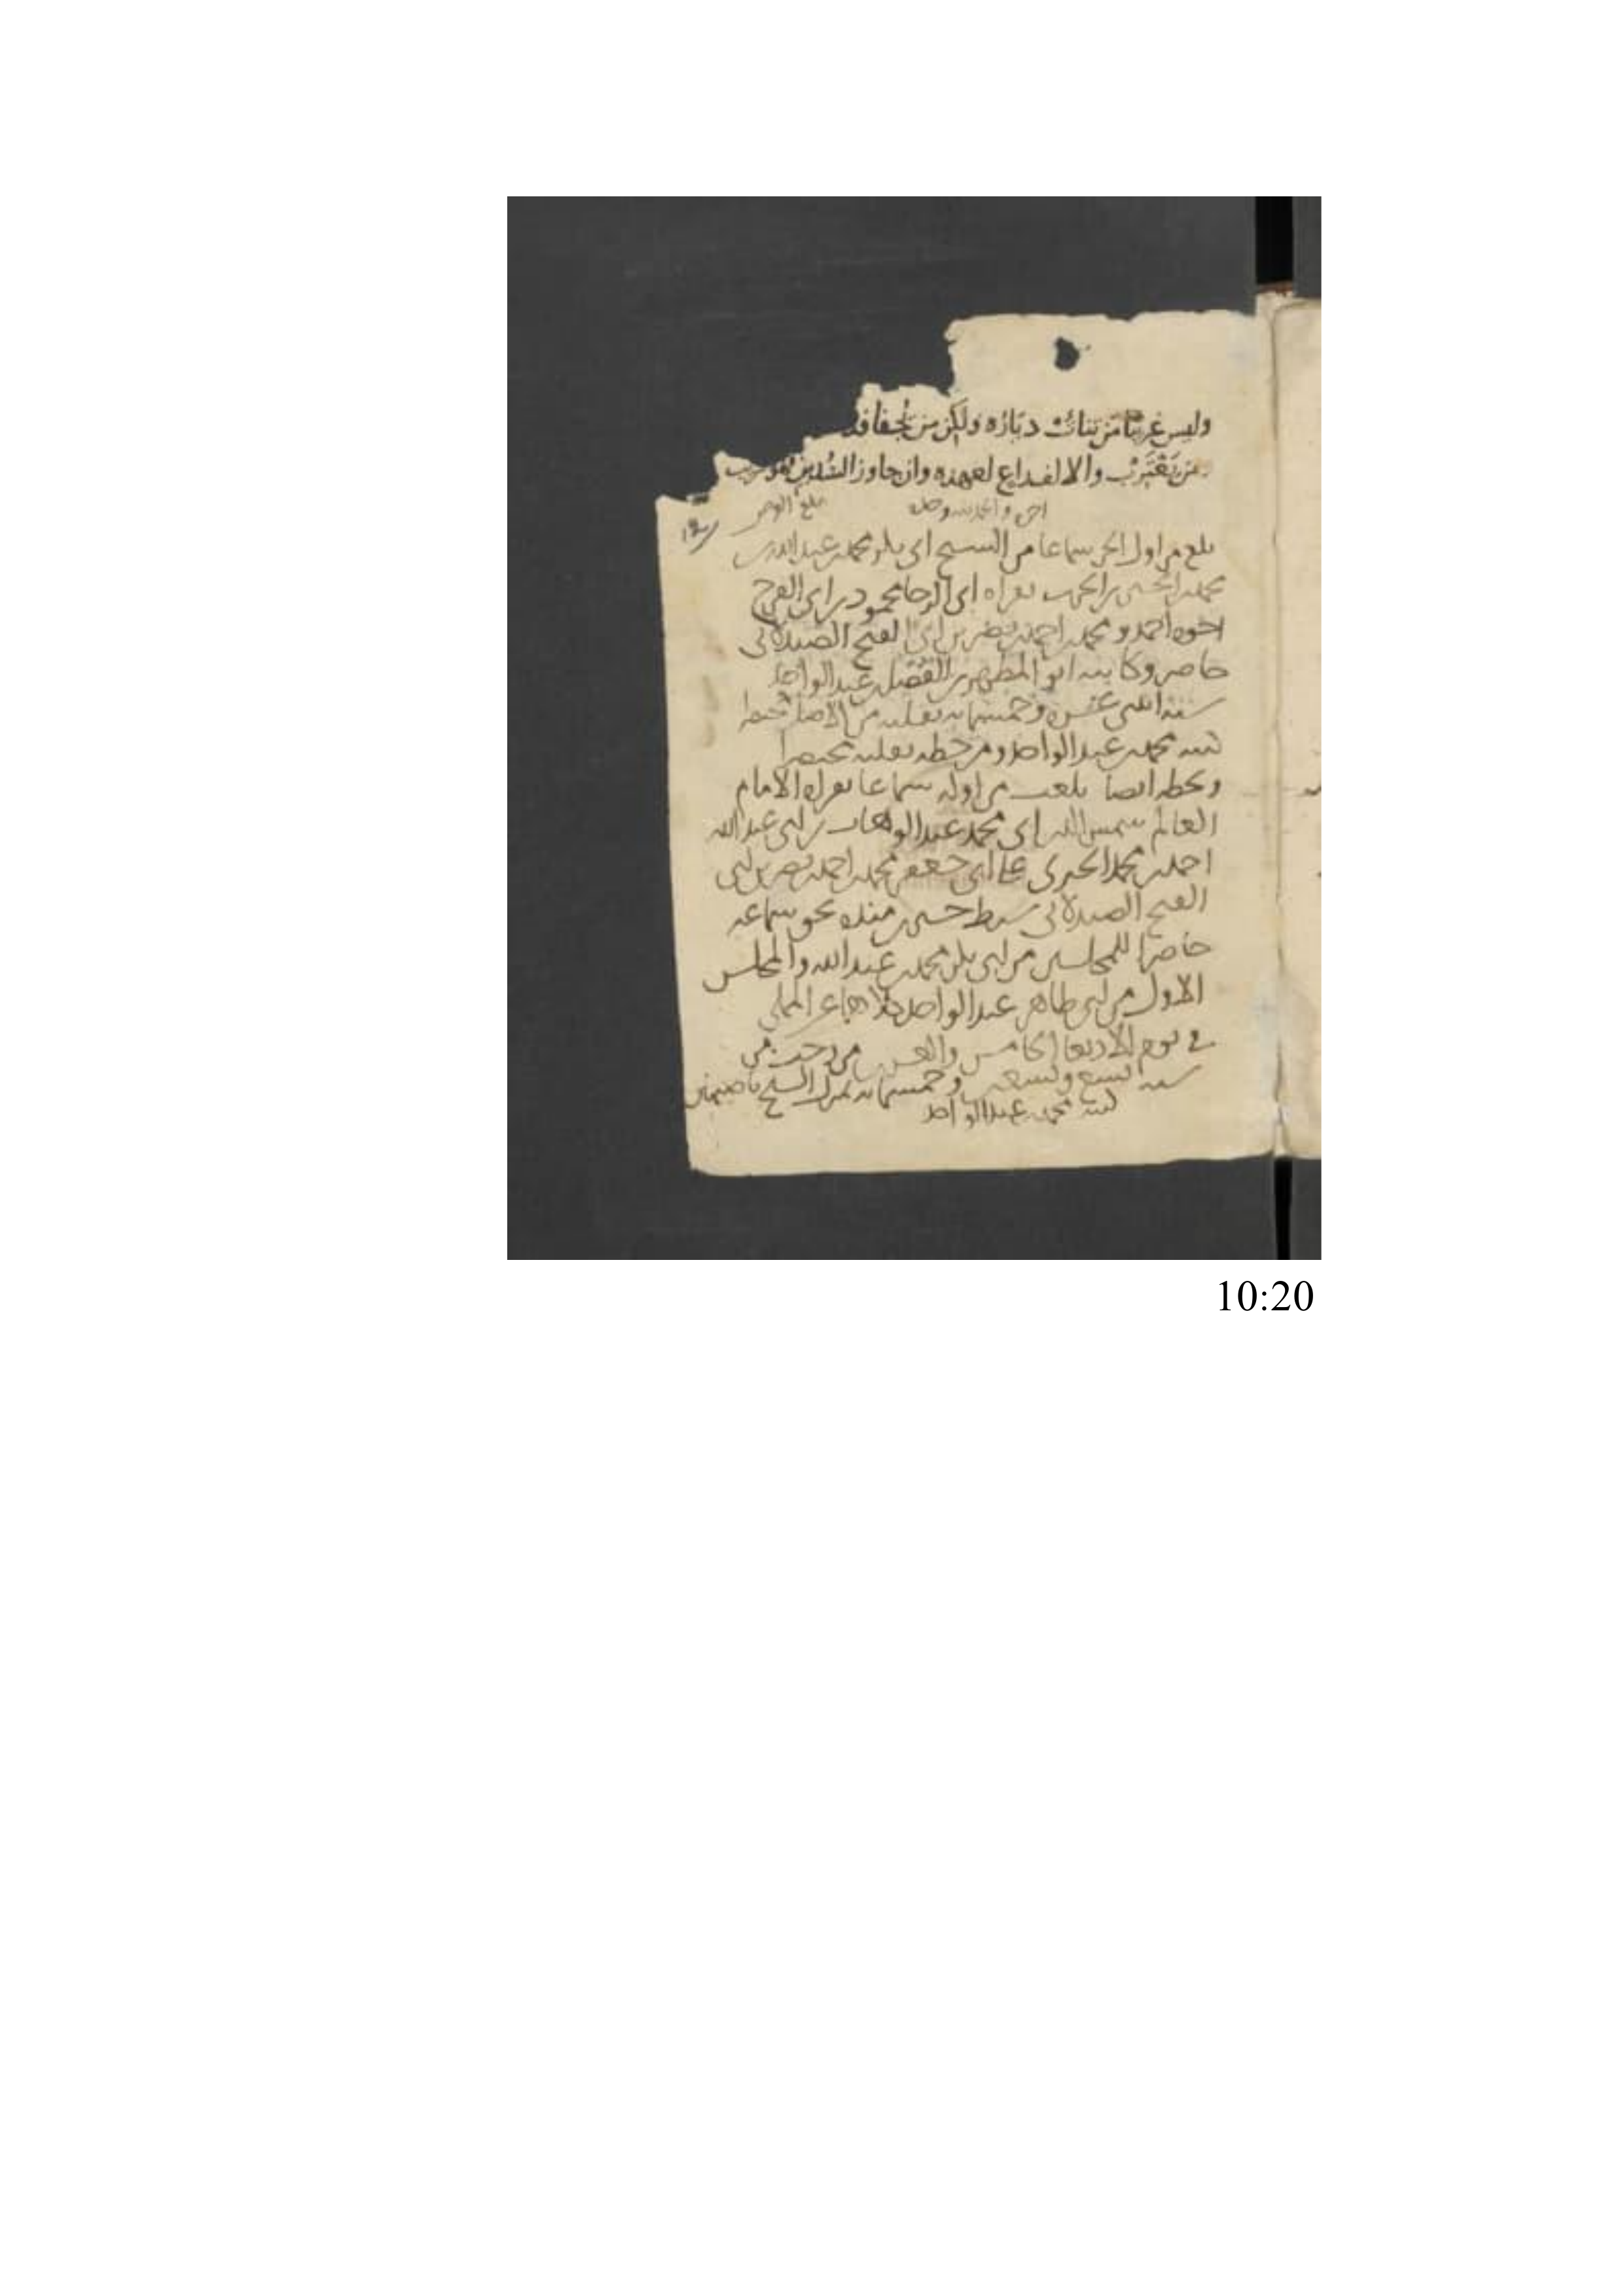 وليس غريبا من تناءت دياره ولكن من يُجفا فذ
من يَقْتَرِبْ والا لفداع لعهده وان جاوز السُدين فهو
اخر والحمد لله وحده
بلغ
بلغ من اول الجز سماعا من الشيخ ابى بكر محمد بن عبد الله بن
محمد بن الحسين بن بقراه ابى الرجا محمود بن ابى الفرج
اخوه احمد ومحمد بن احمد بن نصر بن ابى الفتح الصيدلانى
حاضر وكاتبه ابو المطهر بن الفضل بن عبد الواحد
سنه اثنى عشره وخمسمايه نقلته من الاصل بخط
كتبه محمد بن عبد الواحد ومن خطه نقلته مختصرا
وبخطه ايضا بلغت من اوله سماعا بقراه الامام
العالم شمس الدين ابى محمد عبد الوهاب بن ابى عبد الله
احمد بن محمد على ابى جعفر محمد بن احمد بن نصر بن ابى
الفتح الصيدلانى سبط حسين بن منده بحق سماعه
حاضرا للمجلسين من ابى بكر محمد بن عبد الله والمجلس
الاول من ابى طاهر عبد الواحد كلاهما عن المملى
فى يوم الاربعا الخامس والعشرين من رجب من
سنه تسع وتسعين وخمسمايه بمنزل الشيخ باصبهان
كتبه محمد بن عبد الواحد
10:20